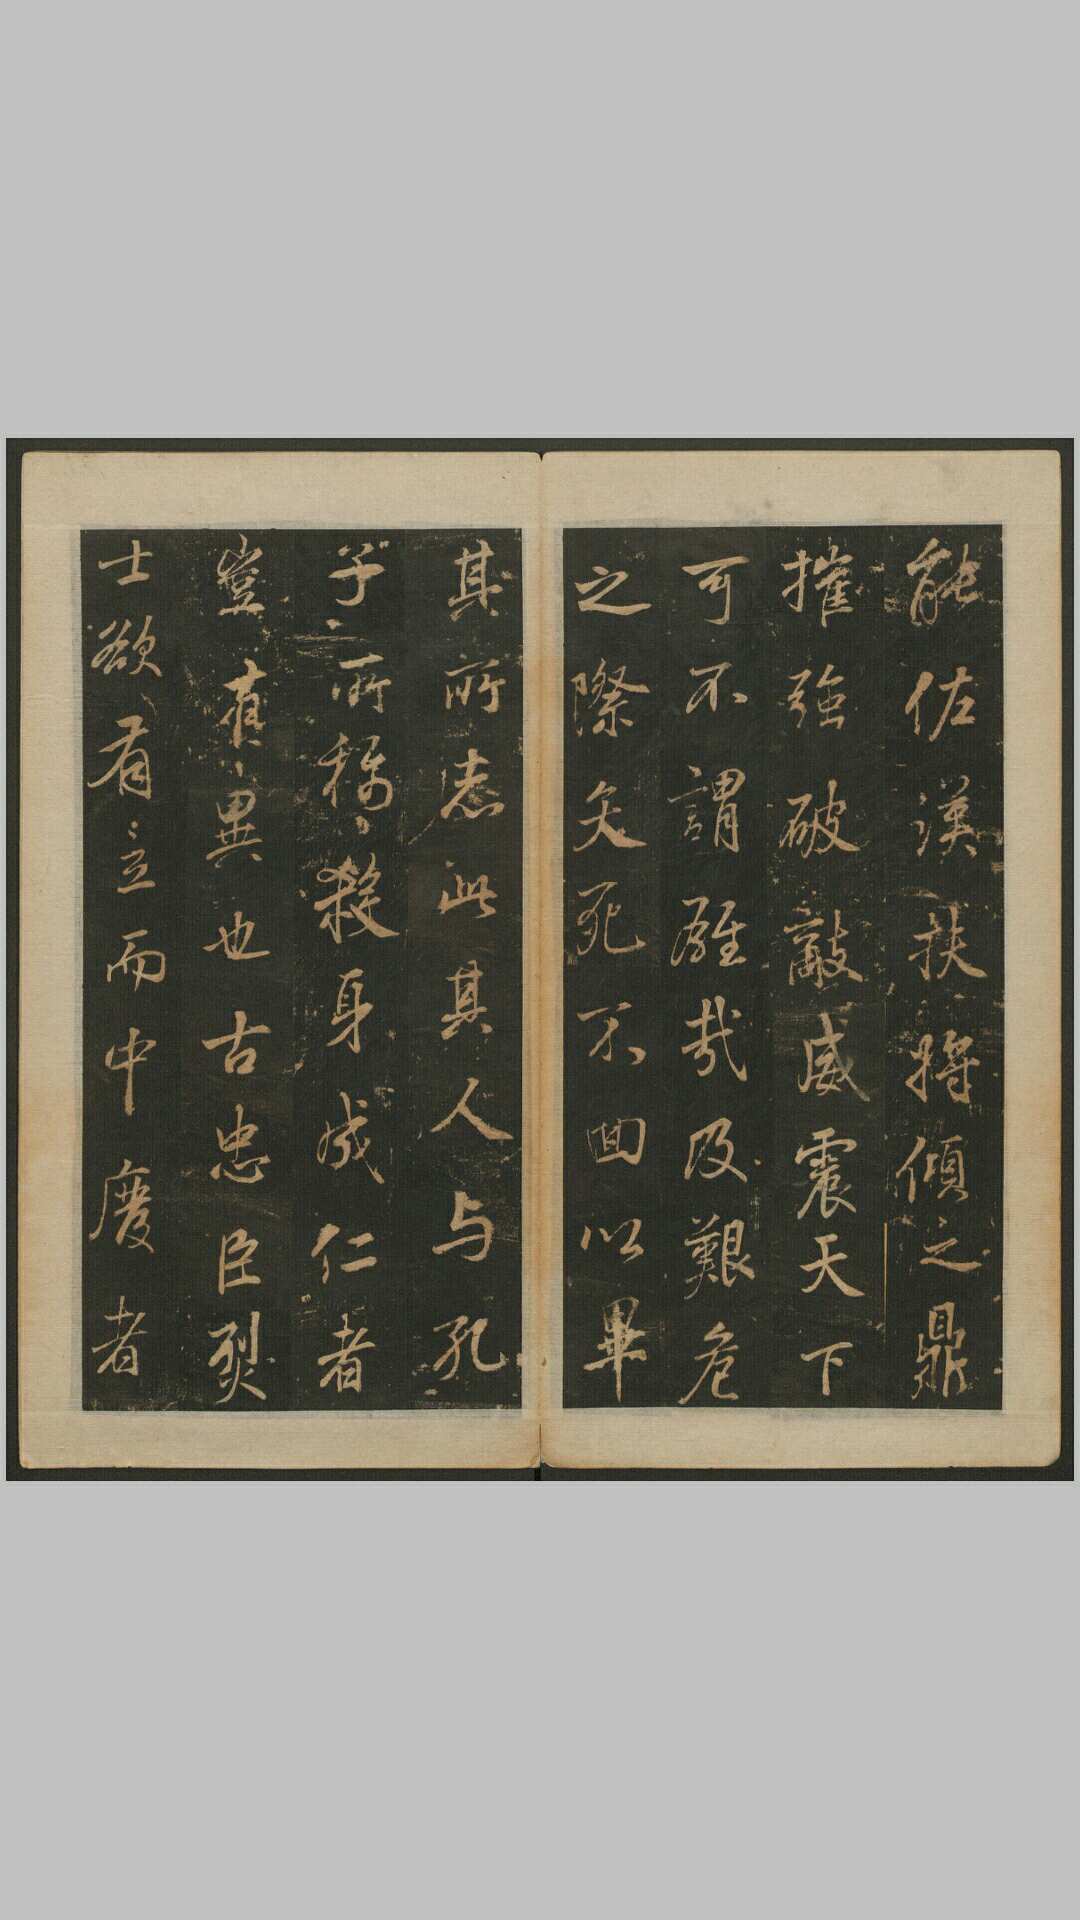 能佐漢扶將傾之鼎
摧強破敵威震天下
可不謂難哉及艱危
之際矢死不回以畢
其所志此其人与孔
子所称殺身成仁者
豈有異也古忠臣烈
士欲有立而中廢者